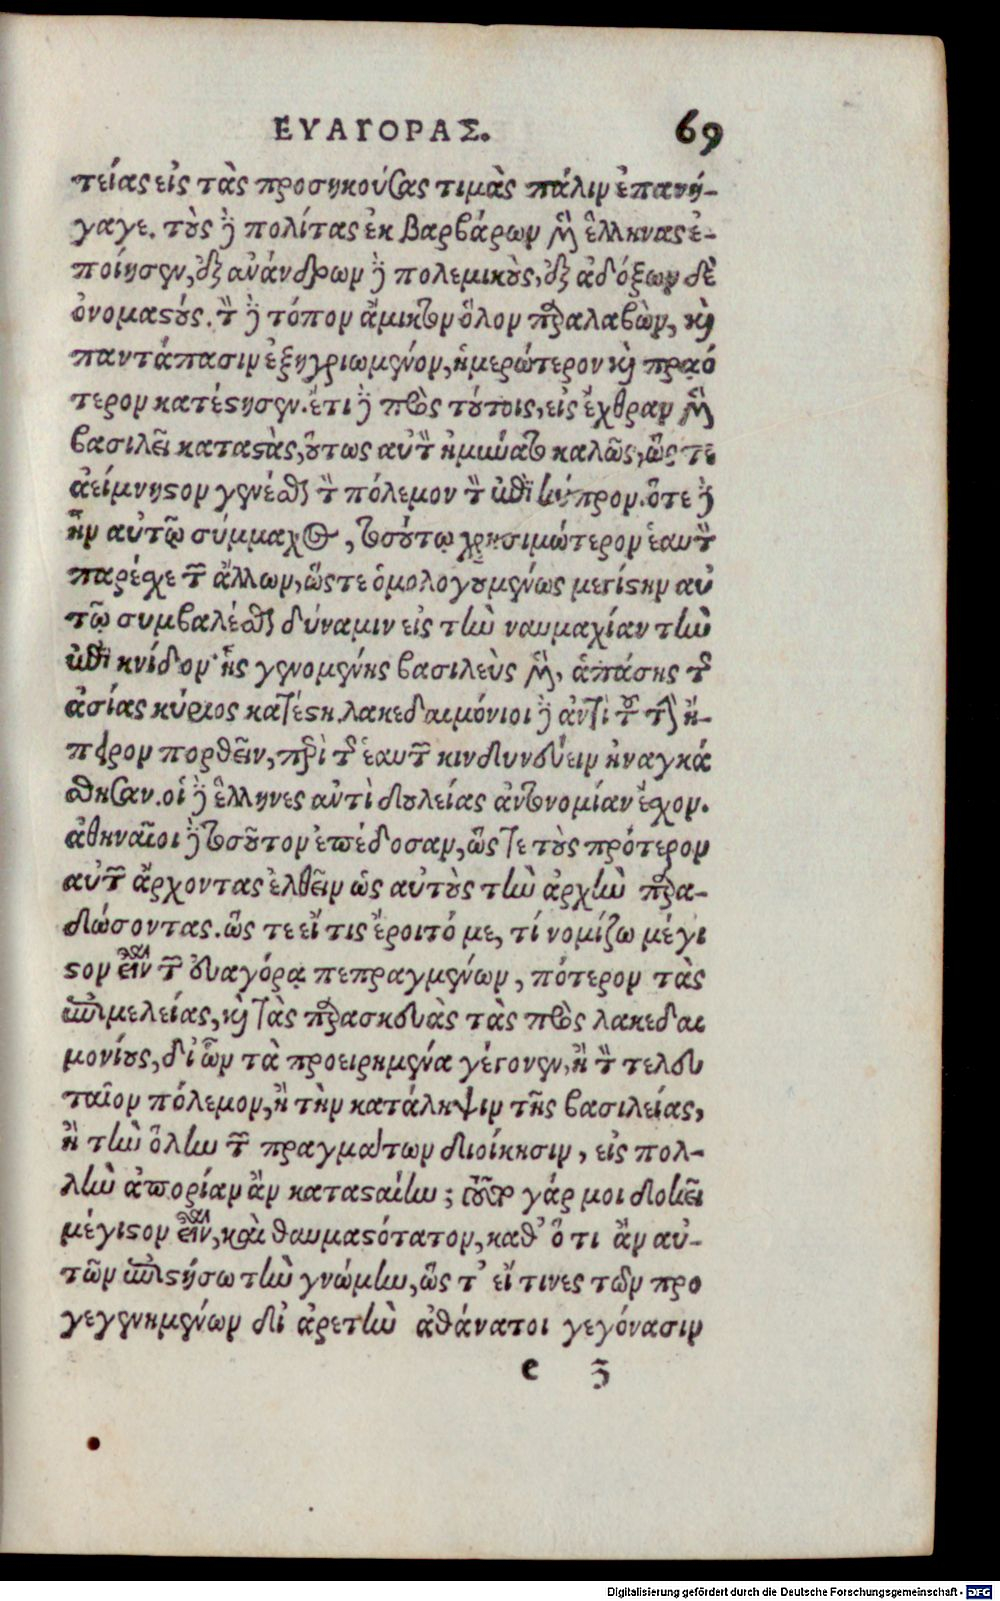 ΕΥΑΓΟΡΑΣ. 69
τείας εἰς τὰς προσηκούσας τιμὰς πάλιν ἐπανή-
γαγε. τοὺς δὲ πολίτας ἐκ βαρβάρων μὲν ἕλληνας ἐ-
ποίησεν, ἐξ ἀνάνδρων δὲ πολεμικοὺς, ἐξ ἀδόξων δὲ
ὀνομαστούς. τὸν δὲ τόπον ἄμικτον ὅλον παραλαβὼν, καὶ
παντάπασιν ἐξηγριωμένον, ἡμερώτερον καὶ πραό
τερον κατέστησεν. ἔτι δὲ πρὸς τούτοις, εἰς ἔχθραν μὲν
βασιλεῖ καταστὰς, οὕτως αὐτὸν ἠμύνατο καλῶς, ὥς τε
ἀείμνηστον γενέσθαι τὸν πόλεμον τὸν ἐπὶ κύπρον. ὅτε δὲ
ἦν αὐτῷ σύμμαχος, τοσούτῳ χρησιμώτερον ἑαυτὸν
παρέσχε τῶν ἄλλων, ὥς τε ὁμολογουμένως μεγίστην αὐ
τῷ συμβαλέσθαι δύναμιν εἰς τὴν ναυμαχίαν τὴν
ἐπὶ κνίδον· ἧς γενομένης βασιλεὺς μὲν, ἁπάσης τῆς
ἀσίας κύριος κατέστη. λακεδαιμόνιοι δὲ ἀντὶ τοῦ τὴν ἤ-
πειρον πορθεῖν, περὶ τῆς ἑαυτῶν κινδυνεύειν ἠναγκά
σθησαν. οἱ δὲ ἕλληνες ἀντὶ δουλείας αὐτονομίαν ἔσχον.
ἀθηναῖοι δὲ τοσοῦτον ἐπέδοσαν, ὥς τε τοὺς πρότερον
αὐτῶν ἄρχοντας ἐλθεῖν ὡς αὐτοὺς τὴν ἀρχὴν παρα-
δώσοντας. ὥς τε εἴ τις ἔροιτό με, τί νομίζω μέγι
στον εἶναι τῶν εὐαγόρᾳ πεπραγμένων, πότερον τὰς
ἐπιμελείας, καὶ τὰς παρασκευὰς τὰς πρὸς λακεδαι
μονίους, δι' ὧν τὰ προειρημένα γέγονεν, ἢ τὸν τελευ
ταῖον πόλεμον, ἢ τὴν κατάληψιν τῆς βασιλείας,
ἢ τὴν ὅλην τῶν πραγμάτων διοίκησιν, εἰς πολ-
λὴν ἀπορίαν ἂν κατασταίην; γάρ μοι δοκεῖ
μέγιστον εἶναι, καὶ θαυμαστότατον, καθ' ὅ τι ἂν αὐ-
τῶν ἐπιστήσω τὴν γνώμην, ὥς τ' εἴ τινες τῶν προ
γεγενημένων δι' ἀρετὴν ἀθάνατοι γεγόνασιν
e 3
Digitalisierung gefördert durch die Deutsche Forschungsgemeinschaft - DFG